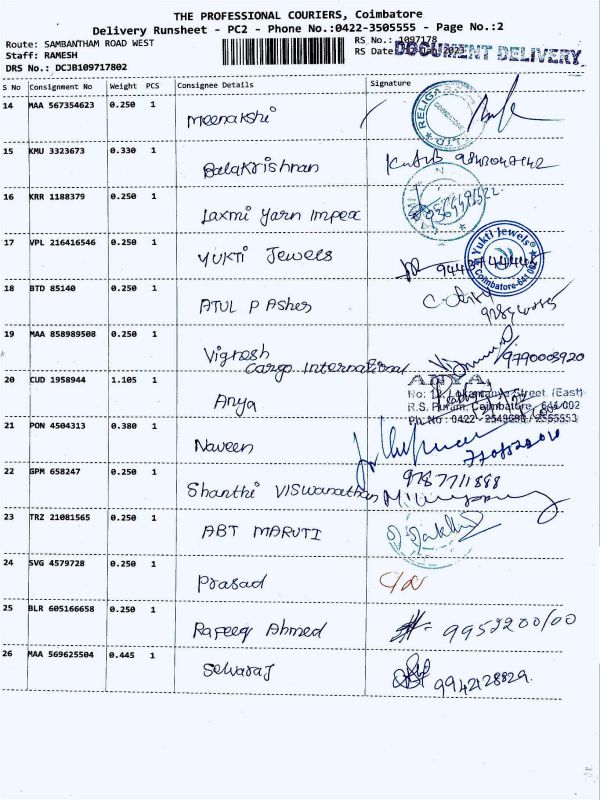 THE PROFESSIONAL COURIERS, Coimbatore
Delivery Runsheet - PC2 - Phone No.:0422-3505555 - Page No.:2
Route: SAMBANTHAM ROAD WEST
RS No.: 1097178
Staff: RAMESH
RS Date
DOCUMENT DELIVERY
DRS No.: DCJB109717802
S No Consignment No Weight PCS Consignee Details Signature
14 MAA 567354623 0.250 1
Meenakshi
RELIGA
COIMBATORE
LTD
15 KMU 3323673 0.330 1
Balakrishnan
16 KRR 1188379 0.250 1
Laxmi Yarn Impex
17 VPL 216416546 0.250 1
YUKTI Jewels
Yukti Jewels
Coimbatore-641 002
18 BTD 85140 0.250 1
ATUL P Asher
19 MAA 858989508 0.250 1
Vignesh
Cargo International
9790008920
20 CUD 1958944 1.105 1
Anya
ANYA,
No: 12, Lokamanya Street, (East)
R.S. Puram, Coimbatore - 641 002
Ph.No : 0422 -
21 PON 4504313 0.380 1
Naveen
22 GPM 658247 0.250 1
Shanthi Viswanathan
9787711888
23 TRZ 21081565 0.250 1
ABT MARUTI
24 SVG 4579728 0.250 1
Prasad
25 BLR 605166658 0.250 1
Rafeeq Ahmed
9952200100
26 MAA 569625504 0.445 1
Selvaraj
9942128829